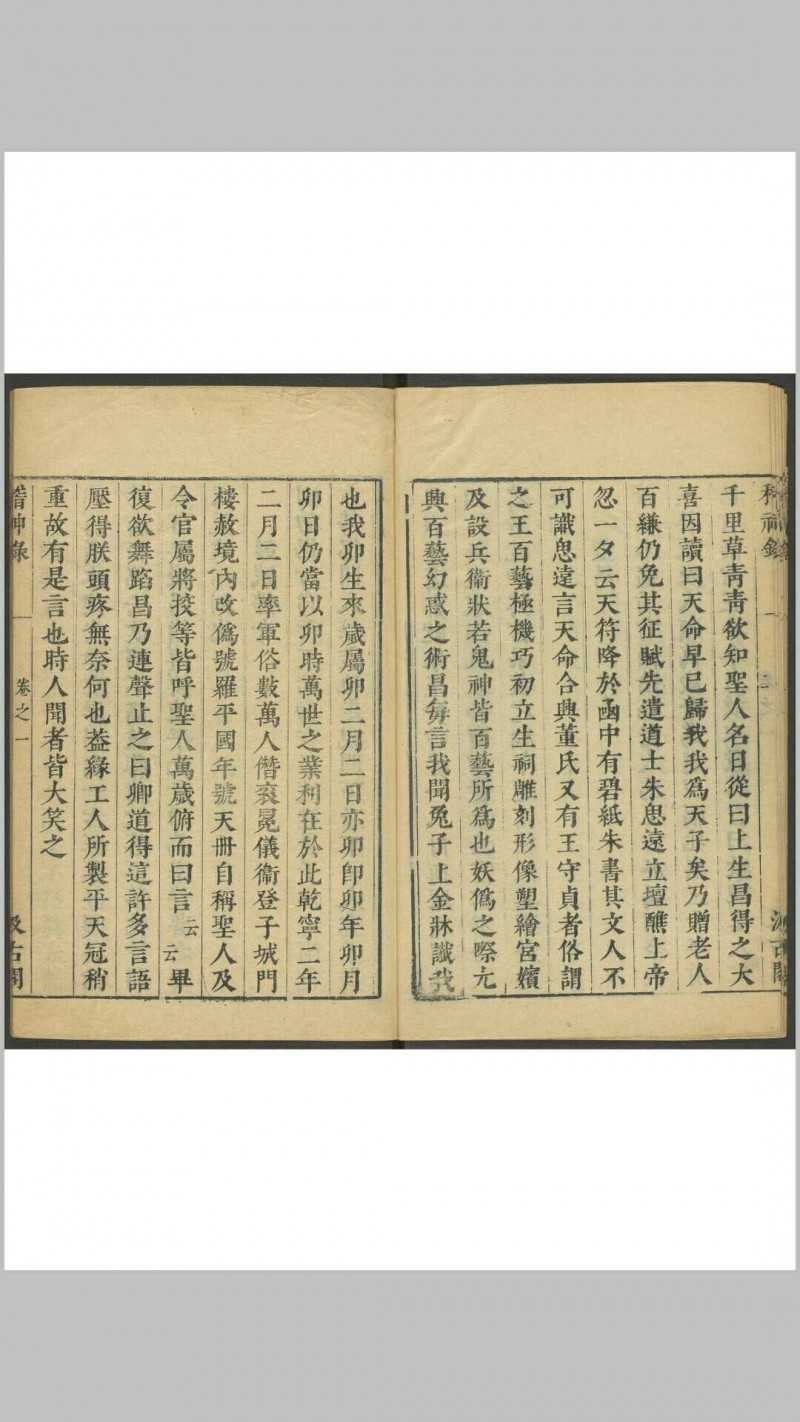 稽神錄
二
汲古閣
千里草青青欲知聖人名日從曰上生昌得之大
喜因讀曰天命早已歸我我爲天子矣乃贈老人
百縑仍免其征賦先遣道士朱思遠立壇醮上帝
忽一夕云天符降於函中有碧紙朱書其文人不
可識思遠言天命合興董氏又有王守貞者俗謂
之王百藝極機巧初立生祠雕刻形像塑繪宮嬪
及設兵衞狀若鬼神皆百藝所爲也妖僞之際尤
興百藝幻惑之術昌每言我聞兔子上金牀讖我
也我卯生來歲屬卯二月二日亦卯卽卯年卯月
卯日仍當以卯時萬世之業利在於此乾寧二年
二月二日率軍俗數萬人僭袞冕儀衞登子城門
樓赦境內改僞號羅平國年號天冊自稱聖人及
令官屬將校等皆呼聖人萬歲俯而曰言云云畢
復欲舞蹈昌乃連聲止之曰卿道得這許多言語
壓得朕頭疼無奈何也葢緣工人所製平天冠稍
重故有是言也時人聞者皆大笑之
稽神錄
卷之一
汲古閣